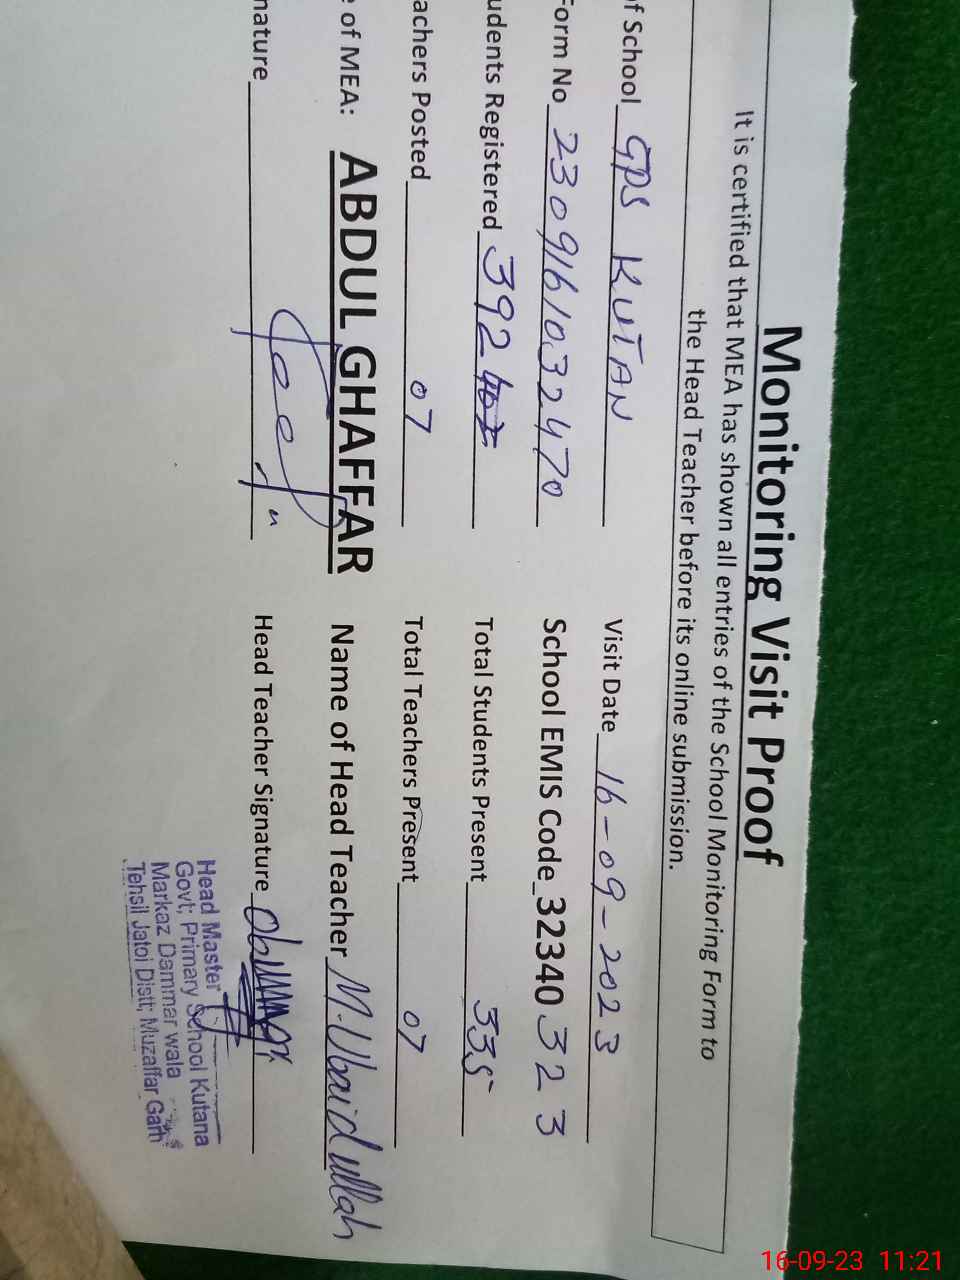 Monitoring Visit Proof
It is certified that MEA has shown all entries of the School Monitoring Form to
the Head Teacher before its online submission.
of School GPS KUTAN Visit Date 16-09-2023
Form No 2309161032470 School EMIS Code 32340323
udents Registered 392 Total Students Present 335
achers Posted 07 Total Teachers Present 07
e of MEA: ABDUL GHAFFAR Name of Head Teacher M. Ubaid ullah
nature Head Teacher Signature
Head Master
Govt; Primary School Kutana
Markaz Dammar wala
Tehsil Jatoi Distt; Muzaffar Garh
16-09-23 11:21